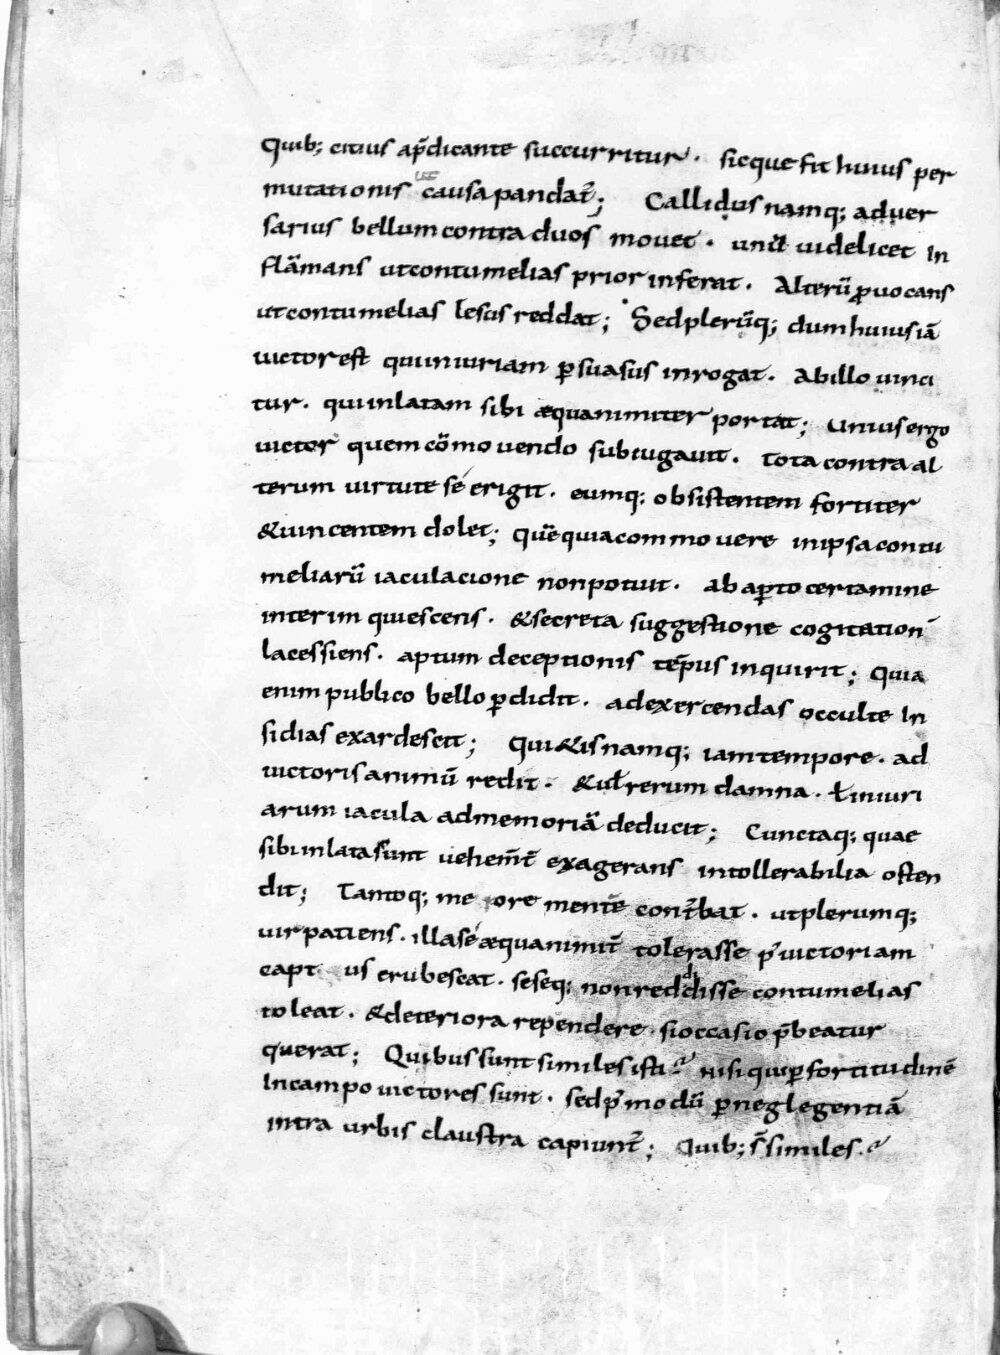 Quib; citius ap̄dicante succurritur. sicque fit huius per
mutationis ut causa pandat̄; Callidus namq; aduer
sarius bellum contra duos mouet. unū uidelicet In
flām̄ans ut contumelias prior inferat. Alterū ꝓuocans
ut contumelias lesus reddat; Sed plerūq; dum huius iā
uictor est qui iniuriam ꝑsuasus inrogat. Ab illo uinci
tur. qui inlatam sibi æquanimiter portat; Unius ergo
uictor quem cōmouendo subiugauit. tota contra al
terum uirtute sé erigit. eumq; obsistentem fortiter
& uincentem dolet; Quē quia commouere in ipsa contu
meliarū iaculacione non potuit. ab aꝑto certamine
interim quiescens. & secreta suggestione cogitation̄
lacessiens. aptum deceptionis tēpus inquirit; Quia
enim publico bello ꝑdidit. ad exercendas occulte In
sidias exardescit; Qui&is namq; iam tempore. ad
uictoris animū redit. & uł rerum damna. ł iniuri
arum iacula ad memoriā deducit; Cunctaq; quae
sibi inlata sunt uehem̄t̄ exagerans intollerabilia osten
dit; Tantoq; me ore mentē cont̄bat. ut plerumq;
uir patiens. illa sé æquanimit̄ tolerasse p̄ uictoriam
capt us erubescat. seseq; non reddisse contumelias
toleat. & deteriora rependere. si occasio p̄beatur
querat; Quibus sunt similes isti? nisi qui ꝑ fortitudinē
In campo uictores sunt. sed p̄modū ꝑ neglegentiā
intra urbis claustra capiunt̄; Quib; s̄ similes.?